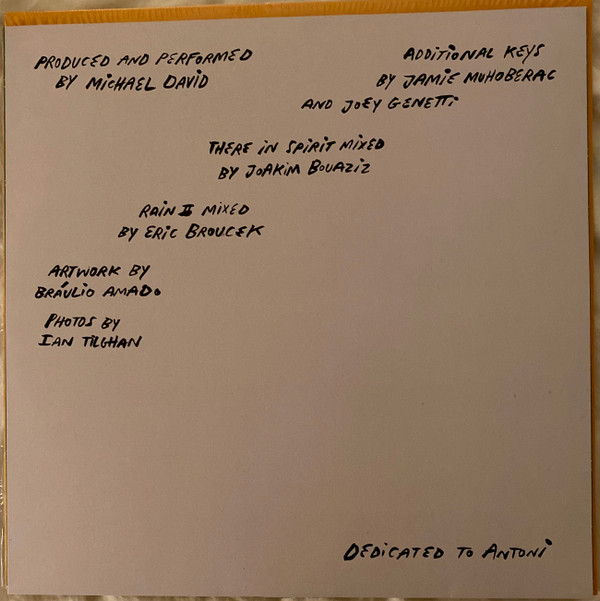 PRODUCED AND PERFORMED
BY MICHAEL DAVID
ADDITIONAL KEYS
BY JAMIE MUHOBERAC
AND JOEY GENETTI
THERE IN SPIRIT MIXED
BY JOAKIM BOUAZIZ
RAIN II MIXED
BY ERIC BROUCEK
ARTWORK BY
BRÁULIO AMADO
PHOTOS BY
IAN TILGHAN
DEDICATED TO ANTONI